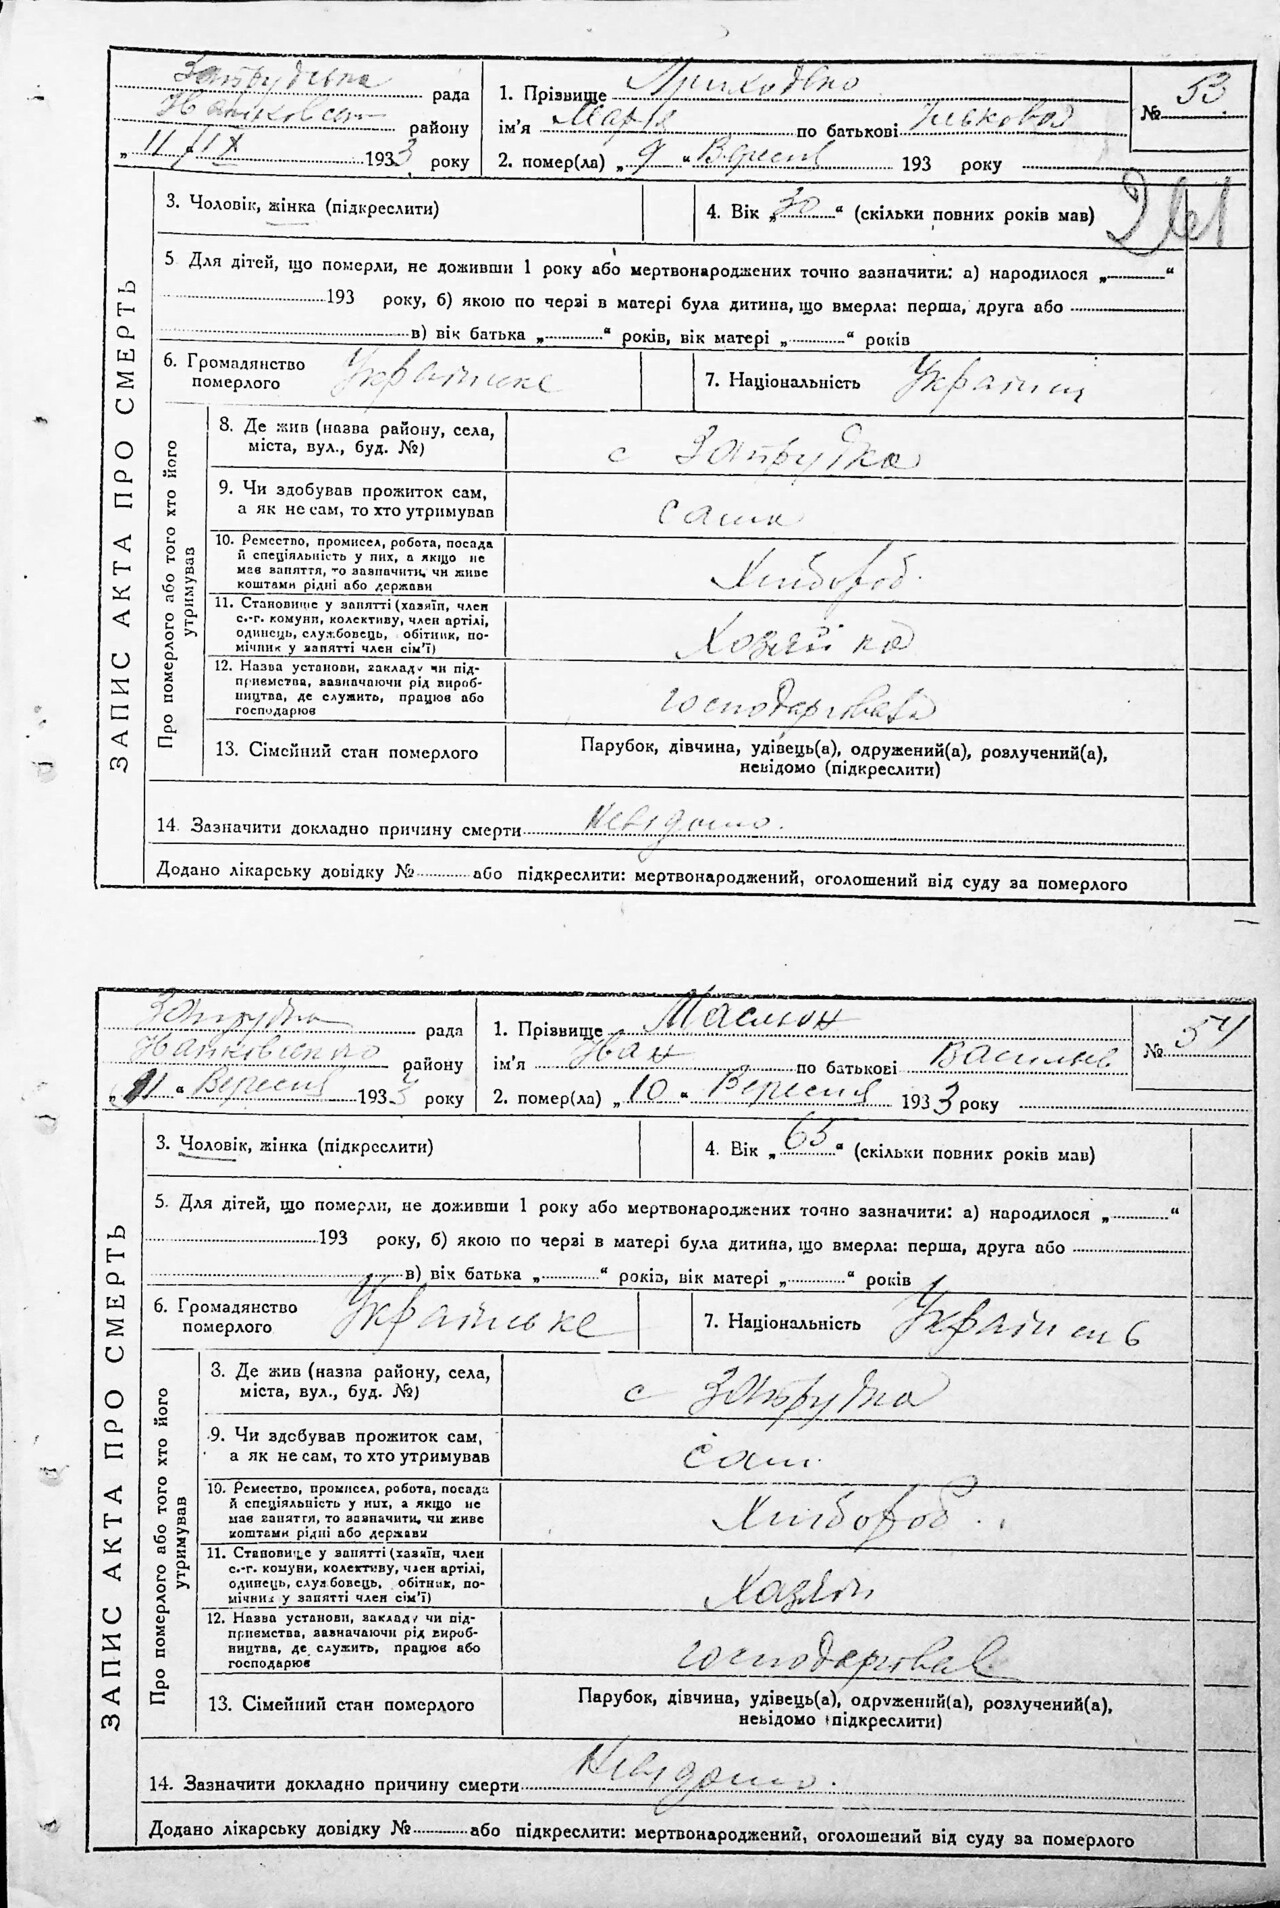 Запрудська рада
району
"11 / IX 1933 року
1. Прізвище Приходько
ім'я Марія по батькові Ількова
2. помер(ла) „ 9 " Вересня 193 року
№ 53
ЗАПИС АКТА ПРО СМЕРТЬ
3. Чоловік, жінка (підкреслити)
4. Вік „ 30 " (скільки повних років мав)
5 Для дітей, що померли, не доживши 1 року або мертвонароджених точно зазначити: а) народилося „ "
193 року, б) якою по черзі в матері була дитина, що вмерла: перша, друга або
в) вік батька „ " років, вік матері „ " років
6. Громадянство померлого Українське
7. Національність
Про померлого або того хто його утримував
8. Де жив (назва району, села,
міста, вул., буд. №)
с Запрудка
9. Чи здобував прожиток сам,
а як не сам, то хто утримував
сама
10. Ремество, промисел, робота, посада
й спеціяльність у них, а якщо не
має заняття, то зазначити, чи живе
коштами рідні або держави
Хлібороб.
11. Становище у занятті (хазяїн, член
с.-г. комуни, колективу, член артілі,
одинець, службовець, обітник, по-
мічник у занятті член сім'ї)
Хозяйка
12. Назва установи, закладу чи під-
приємства, зазначаючи рід вироб-
ництва, де служить, працює або
господарює
господарювала
13. Сімейний стан померлого
Парубок, дівчина, удівець(а), одружений(а), розлучений(а),
невідомо (підкреслити)
14. Зазначити докладно причину смерти невідомо.
Додано лікарську довідку № або підкреслити: мертвонароджений, оголошений від суду за померлого
рада
району
„ 11 " Вересня 1933 року
1. Прізвище Масюк
ім'я Іван по батькові Васильев
2. помер(ла) „ 10 " Вересня 1933 року
№ 54
ЗАПИС АКТА ПРО СМЕРТЬ
3. Чоловік, жінка (підкреслити)
4. Вік „ 65 " (скільки повних років мав)
5. Для дітей, що померли, не доживши 1 року або мертвонароджених точно зазначити: а) народилося „ "
193 року, б) якою по черзі в матері була дитина, що вмерла: перша, друга або
в) вік батька „ " років, вік матері „ " років
6. Громадянство померлого Українське
7. Національність
Про померлого або того хто його утримував
3. Де жив (назва району, села,
міста, вул., буд. №)
с Запрудка
9. Чи здобував прожиток сам,
а як не сам, то хто утримував
сам.
10. Ремество, промисел, робота, посада
й спеціяльність у них, а якщо не
має заняття, то зазначити, чи живе
коштами рідні або держави
Хлібороб.
11. Становище у занятті (хазяїн, член
с.-г. комуни, колективу, член артілі,
одинець, службовець, обітник, по-
мічник у занятті член сім'ї)
Хазяїн
12. Назва установи, закладу чи під-
приємства, зазначаючи рід вироб-
ництва, де служить, працює або
господарює
господарював.
13. Сімейний стан померлого
Парубок, дівчина, удівець(а), одружений(а), розлучений(а),
невідомо (підкреслити)
14. Зазначити докладно причину смерти Невідомо.
Додано лікарську довідку № або підкреслити: мертвонароджений, оголошений від суду за померлого